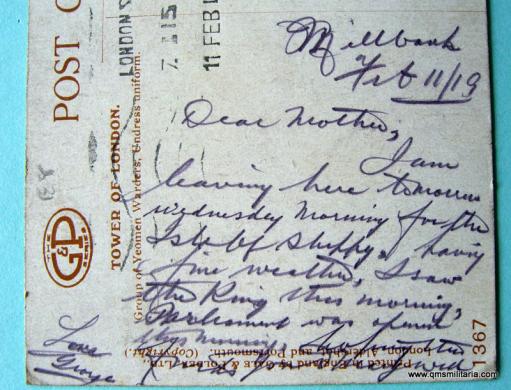 Millbank
Feb 11/19
Dear Mother,
I am
leaving here tomorrow
Wednesday Morning for the
Isle of Sheppy. having
fine weather, I saw
the King this morning,
Parliament was opened
this morning.
Love
George
POST C
LONDON S
7. 15
11 FEB 1
TOWER OF LONDON.
Group of Yeomen Warders, Undress uniform.
THE
G&P
SERIES
Printed in England by GALE & POLDEN, LTD.,
London, Aldershot, and Portsmouth. (Copyright.)
1367
www.qmsmilitaria.com